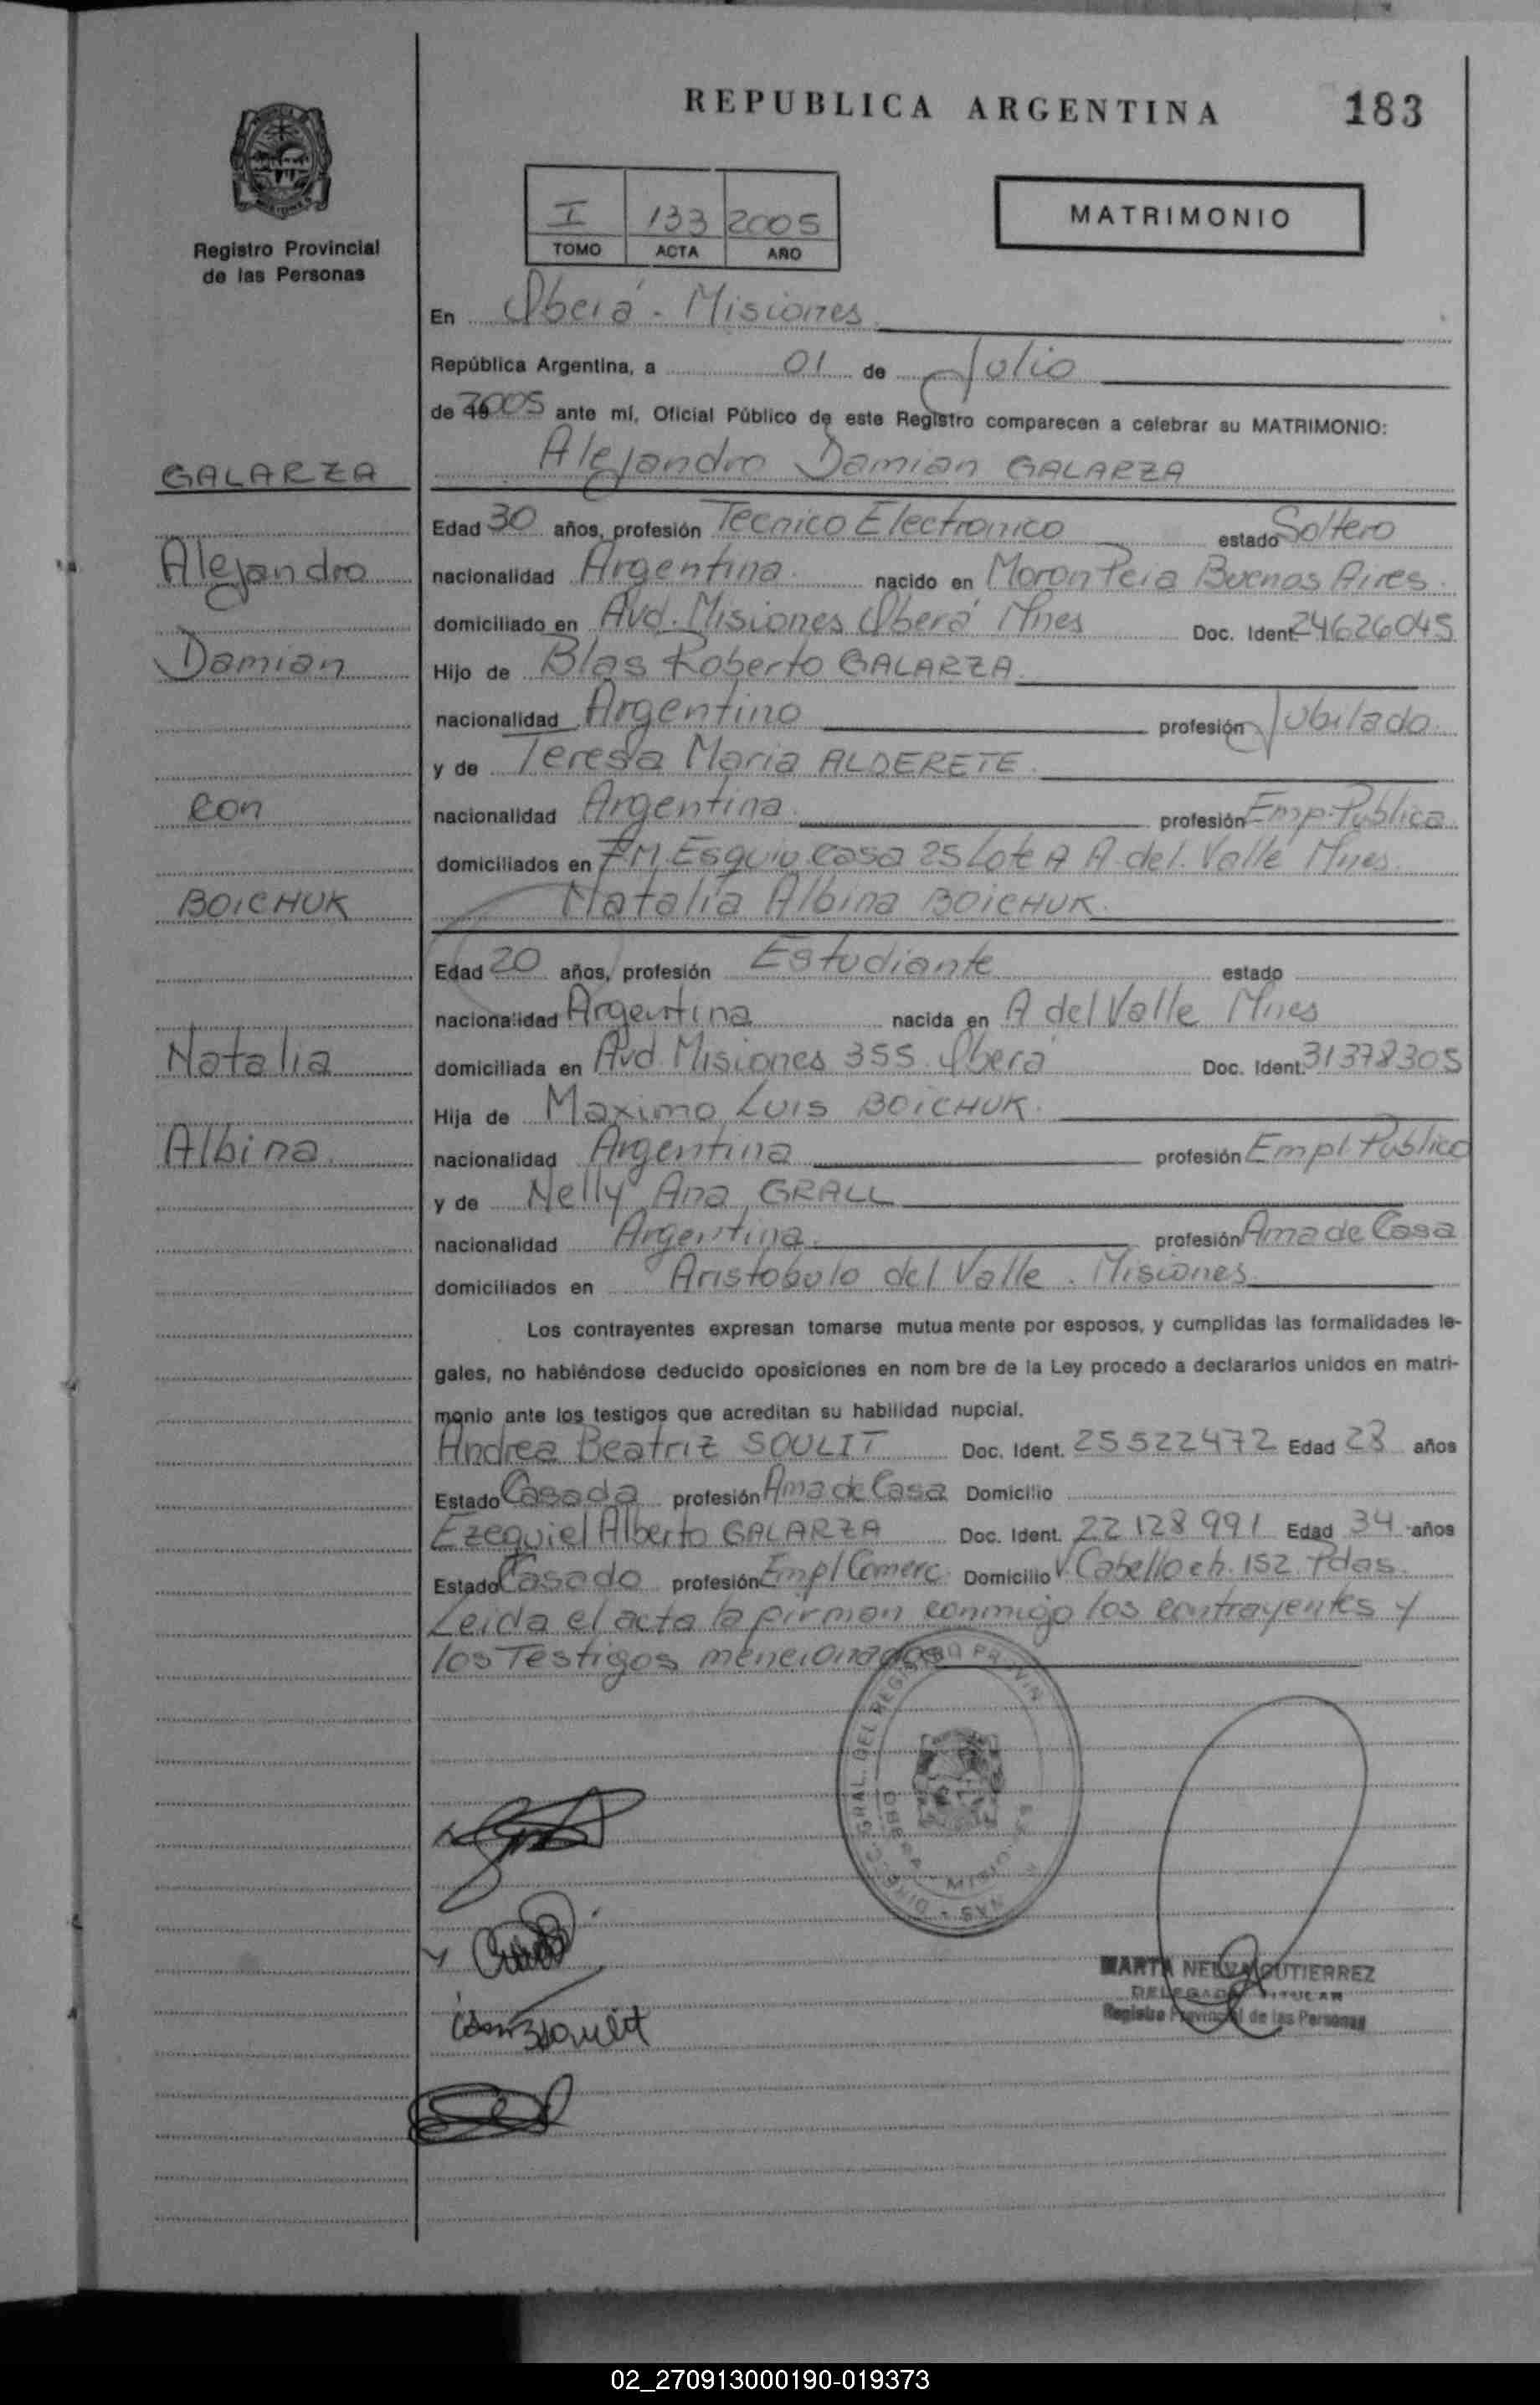 REPUBLICA ARGENTINA 183
Registro Provincial
de las Personas
I 133 2005
TOMO ACTA AÑO
MATRIMONIO
En Oberá - Misiones
República Argentina, a 01 de Julio
de 2005 ante mí, Oficial Público de este Registro comparecen a celebrar su MATRIMONIO:
GALARZA
Alejandro Damian GALARZA
Edad 30 años, profesión Tecnico Electronico estado Soltero
Alejandro
nacionalidad Argentina nacido en Moron Pcia Buenos Aires.
domiciliado en Avd. Misiones Oberá Mnes Doc. Ident. 24626045
Damian
Hijo de Blas Roberto GALARZA
nacionalidad Argentino profesión Jubilado
y de Teresa Maria ALDERETE
con
nacionalidad Argentina profesión Emp. Publica
domiciliados en F.M. Esquiu Casa 25 Lote A A. del Valle Mnes.
BOICHUK
Natalia Albina BOICHUK
Edad 20 años, profesión Estudiante estado
nacionalidad Argentina nacida en A del Valle Mnes
Natalia
domiciliada en Avd. Misiones 355. Oberá Doc. Ident. 31378305
Hija de Maximo Luis BOICHUK
Albina
nacionalidad Argentina profesión Empl. Publico
y de Nelly Ana GRALL
nacionalidad Argentina profesión Ama de Casa
domiciliados en Aristobulo del Valle. Misiones
Los contrayentes expresan tomarse mutua mente por esposos, y cumplidas las formalidades le-
gales, no habiéndose deducido oposiciones en nom bre de la Ley procedo a declararlos unidos en matri-
monio ante los testigos que acreditan su habilidad nupcial.
Andrea Beatriz SOULIT Doc. Ident. 25522472 Edad 28 años
Estado Casada profesión Ama de Casa Domicilio
Ezequiel Alberto GALARZA Doc. Ident. 22128991 Edad 34 años
Estado Casado profesión Empl Comerc Domicilio V. Cabello ch. 152. Pdas.
Leida el acta la firman conmigo los contrayentes y
los Testigos mencionados
MARTA NELVA GUTIERREZ
DELEGADA TITULAR
Registro Provincial de las Personas
02_270913000190-019373